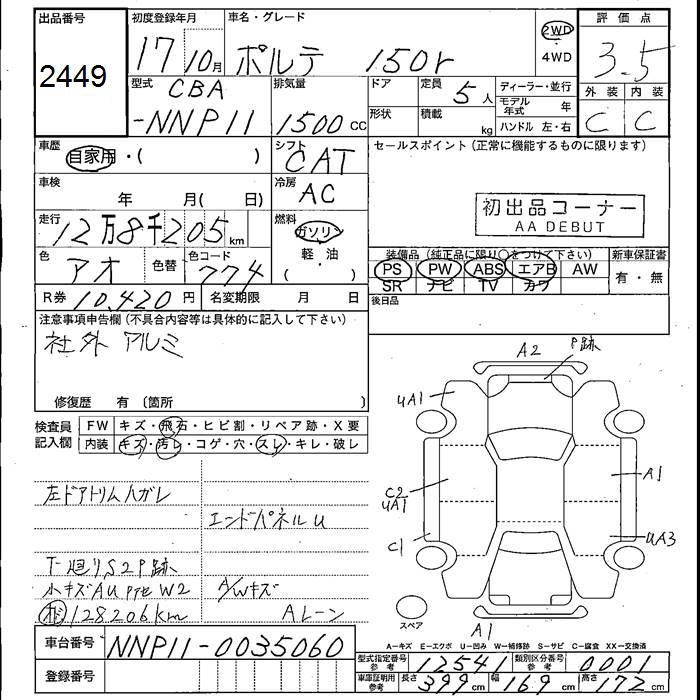 出品番号
2449
初度登録年月
17 10月
車名・グレード
ポルテ 150r
2WD
・
4WD
評価点
3.5
外装 内装
C C
型式
CBA
-NNP11
排気量
1500 CC
ドア
形状
定員
5人
積載
kg
ディーラー・並行
モデル年式 年
ハンドル 左・右
車歴
自家用・( )
シフト
CAT
セールスポイント(正常に機能するものに限ります)
初出品コーナー
AA DEBUT
車検
年 月( 日)
冷房
AC
走行
12万8千205km
燃料
ガソリン
軽・油
( )
色
アオ
色替
色コード
774
装備品(純正品に限り○をつけて下さい)
PS PW ABS エアB AW
SR ナビ TV カワ
新車保証書
有・無
後日品
R券 10,420円
名変期限 月 日
注意事項申告欄(不具合内容等は具体的に記入して下さい)
社外 アルミ
修復歴 有〔箇所 〕
検査員
記入欄
FW キズ・飛石・ヒビ割・リペア跡・X要
内装 キズ・汚レ・コゲ・穴・スレ・キレ・破レ
左ドアトリムハガレ
エンドパネルU
下廻りS2P跡
小キズAU PTE W2
A/Wキズ
128206km
Aレーン
A2
P跡
UA1
C2
UA1
C1
A1
UA3
A1
スペア
A-キズ E-エクボ U-凹み W-補修跡 S-サビ C-腐食 XX-交換済
車台番号
NNP11-0035060
登録番号
型式指定番号
参考
12541
類別区分番号
参考
0001
車庫証明用
参考
長さ 399cm
幅 169cm
高さ 172cm